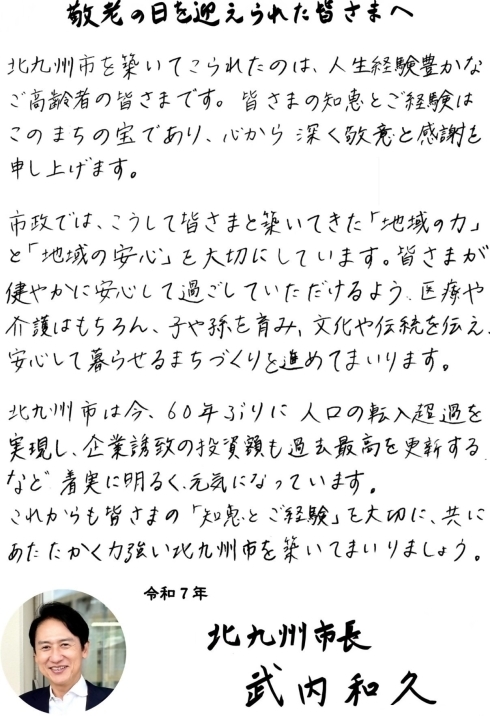 敬老の日を迎えられた皆さまへ
北九州市を築いてこられたのは、人生経験豊かな
ご高齢者の皆さまです。皆さまの知恵とご経験は
このまちの宝であり、心から深く敬意と感謝を
申し上げます。
市政では、こうして皆さまと築いてきた「地域の力」
と「地域の安心」を大切にしています。皆さまが
健やかに安心して過ごしていただけるよう、医療や
介護はもちろん、子や孫を育み、文化や伝統を伝え、
安心して暮らせるまちづくりを進めてまいります。
北九州市は今、60年ぶりに人口の転入超過を
実現し、企業誘致の投資額も過去最高を更新する
など、着実に明るく、元気になっています。
これからも皆さまの「知恵とご経験」を大切に、共に
あたたかく力強い北九州市を築いてまいりましょう。
令和7年
北九州市長
武内和久